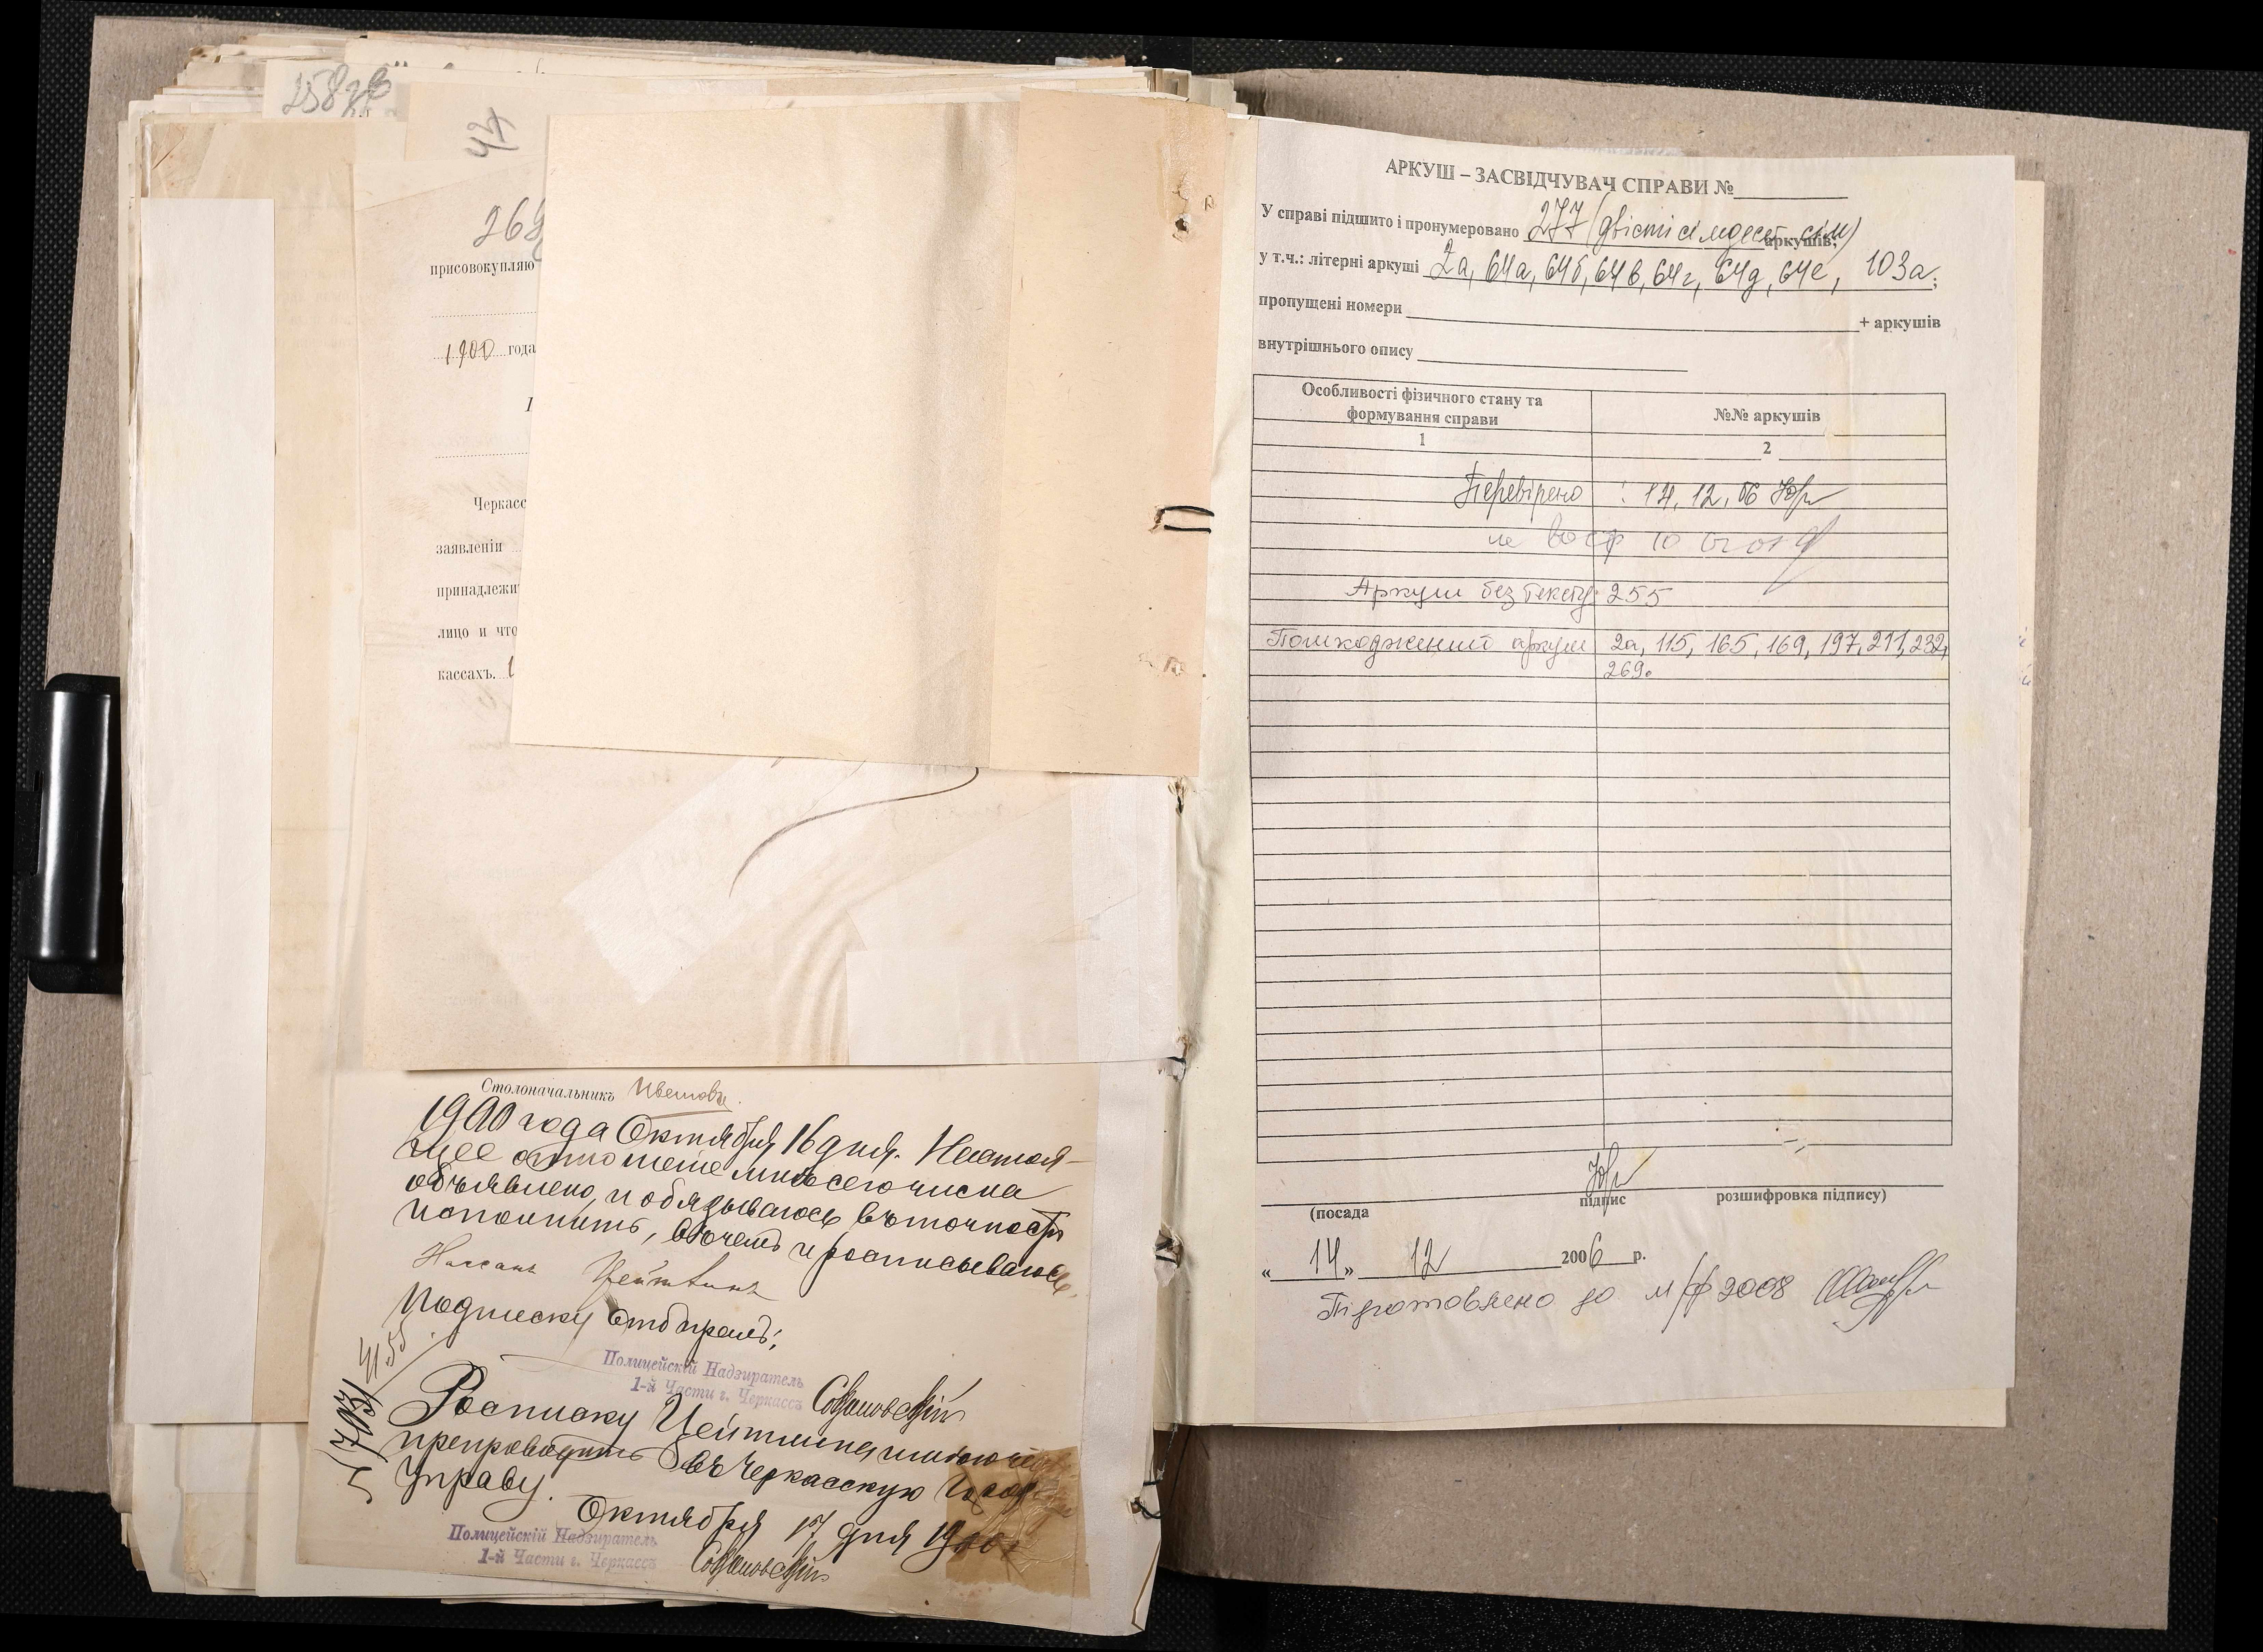 258
47
268
присовокупляю
1900 года
Черкасс
заявленіи
принадлежи
лицо и что
кассахъ.
Столоначальникъ
1900 года Октября 16 дня. Настоя-
щее отношеніе мнѣ сего числа
объявлено, и обязываюсь въ точности
исполнить, въ чемъ и росписываюсь.
Ниссанъ Цейтлинъ
Подписку отбиралъ:
Полицейскій Надзиратель
1-й Части г. Черкассъ
Росписку Цейтлина
препроводить въ Черкасскую
Управу.
Октября 17 дня 1900
Полицейскій Надзиратель
1-й Части г. Черкассъ
АРКУШ – ЗАСВІДЧУВАЧ СПРАВИ №
У справі підшито і пронумеровано 277 (двісті сімдесят сім) аркушів;
у т.ч.: літерні аркуші 2а, 64а, 64б, 64в, 64г, 64д, 64е, 103а;
пропущені номери + аркушів
внутрішнього опису
Особливості фізичного стану та формування справи
№№ аркушів
1
2
Перевірено : 14.12.06
Аркуш без тексту: 255
Пошкоджений аркуш 2а, 115, 165, 169, 197, 211, 232,
269.
(посада підпис розшифровка підпису)
« 14 » 12 2006 р.
Підготовлено до м/ф 2008